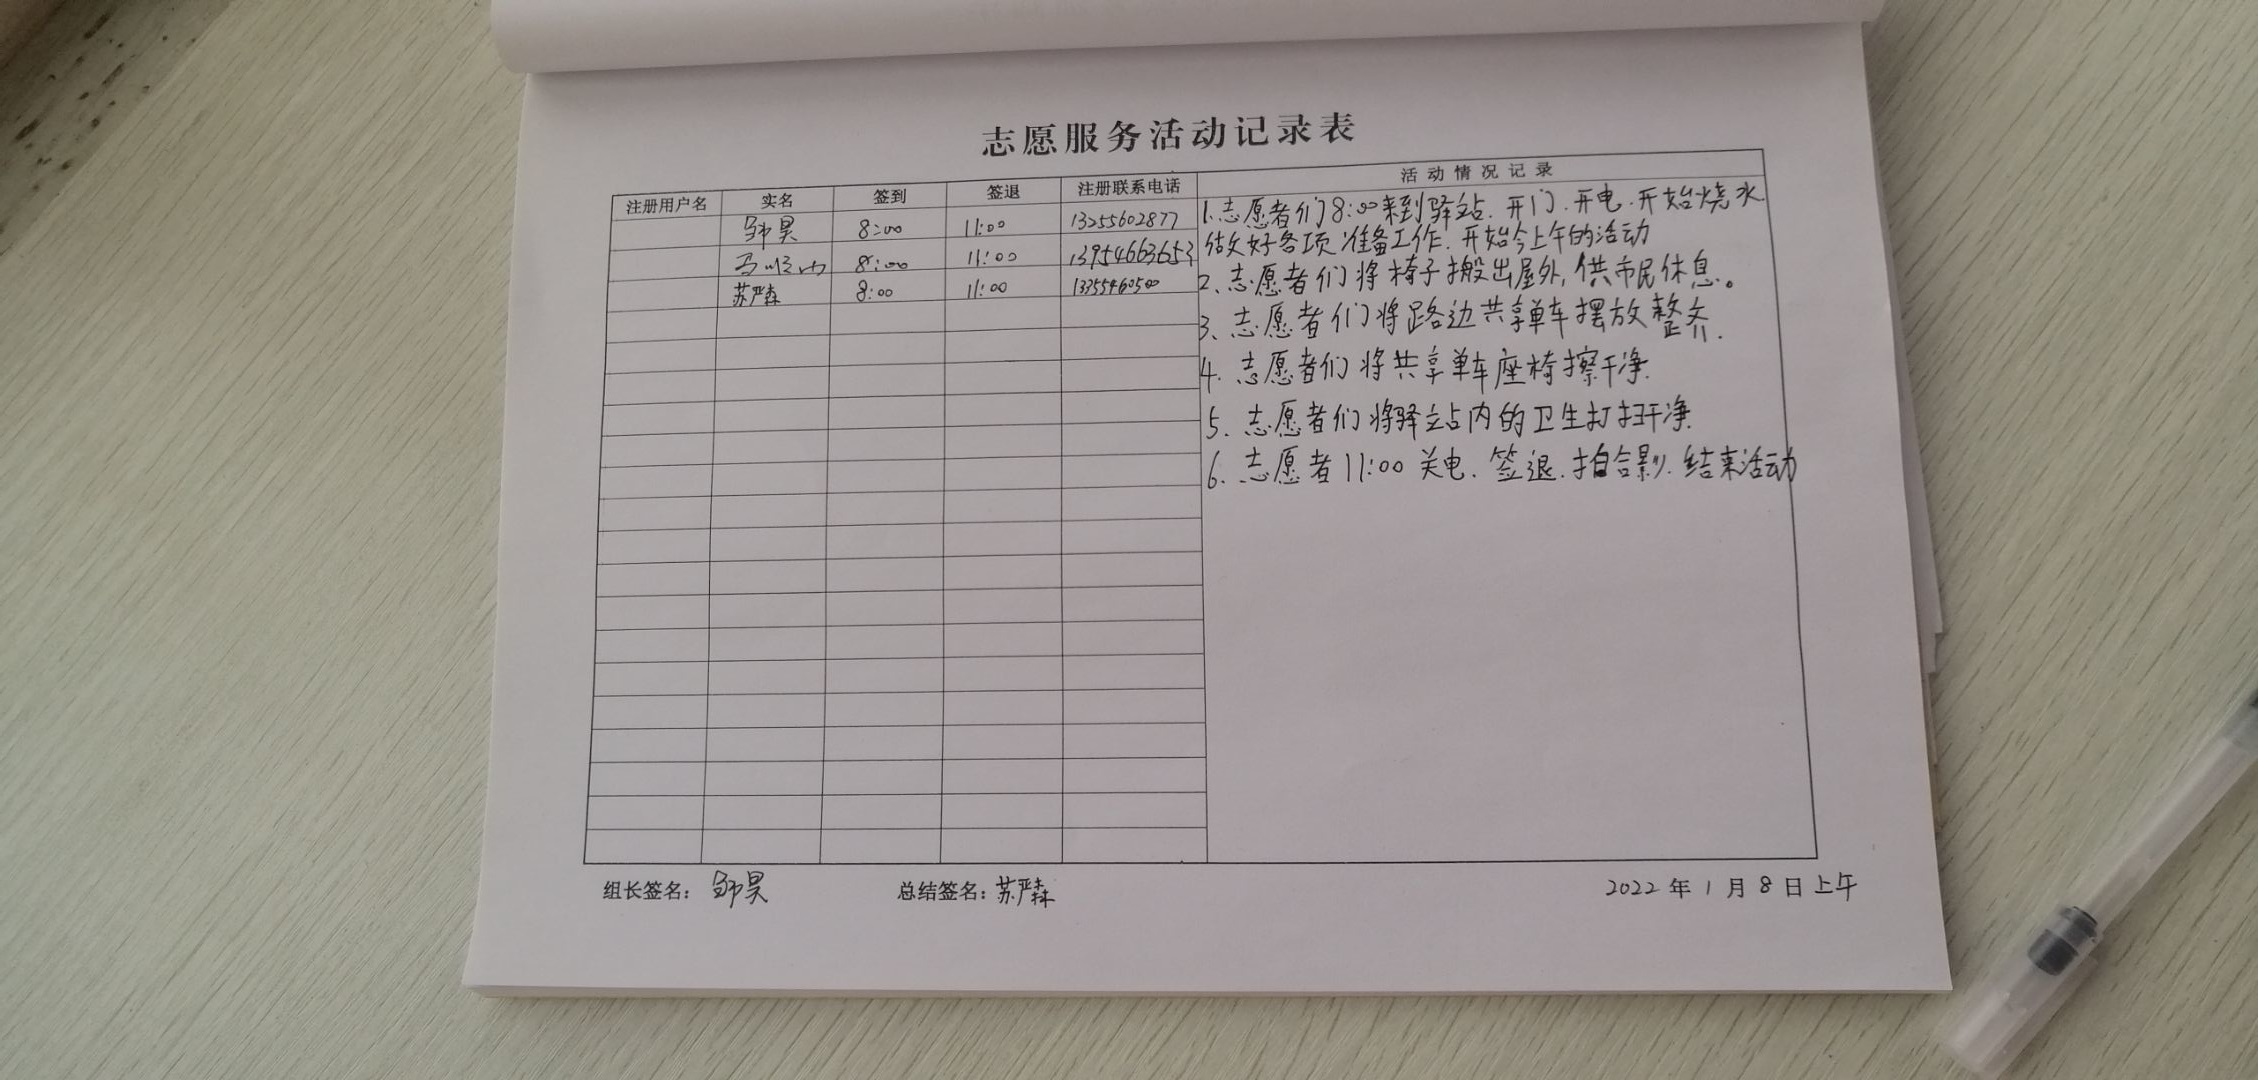 志愿服务活动记录表
注册用户名 实名 签到 签退 注册联系电话 活动情况记录
邹昊 8:00 11:00 13255602877
8:00 11:00 13954663653
苏严森 8:00 11:00 1335546050
1.志愿者们8:00来到驿站.开门.开电.开始烧水
做好各项准备工作.开始今上午的活动
2、志愿者们将椅子搬出屋外,供市民休息。
3、志愿者们将路边共享单车摆放整齐.
4.志愿者们将共享单车座椅擦干净.
5、志愿者们将驿站内的卫生打扫干净.
6.志愿者11:00关电.签退.拍合影.结束活动
组长签名:邹昊 总结签名:苏严森 2022年1月8日上午